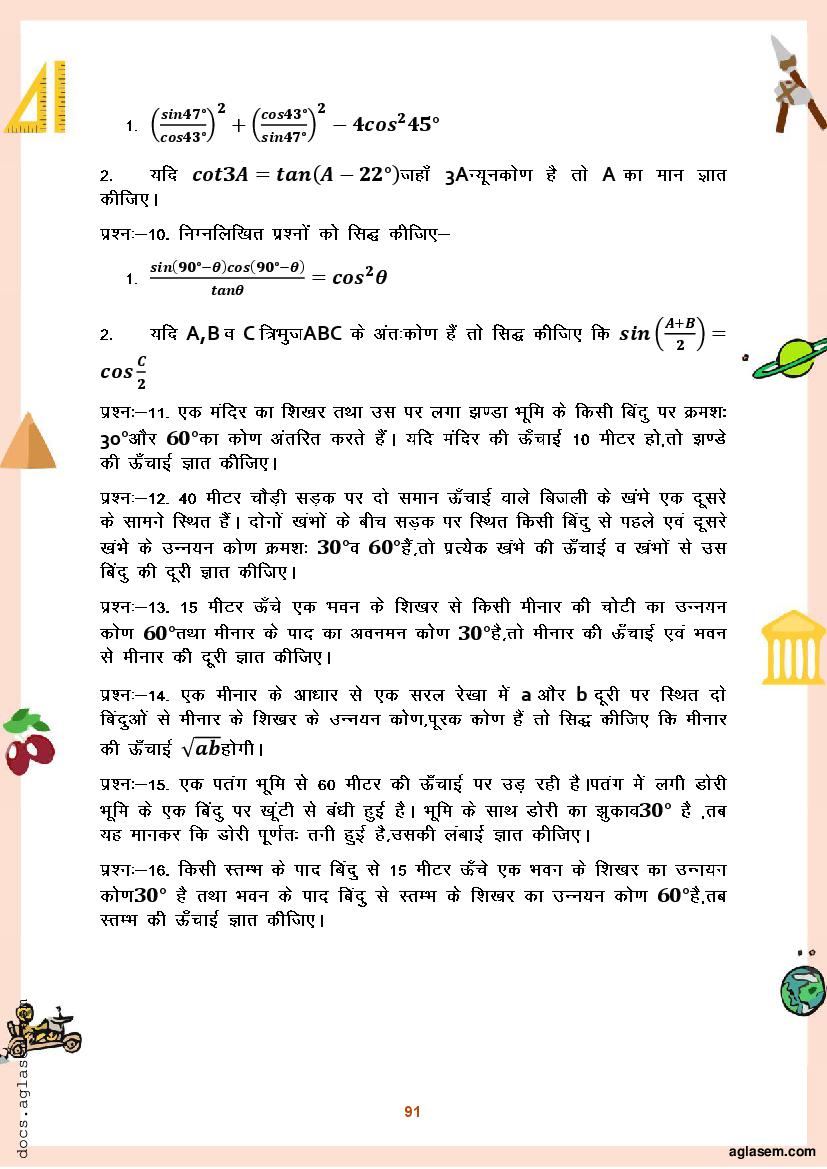 1. (sin47°/cos43°)² + (cos43°/sin47°)² − 4cos²45°
2. यदि cot3A = tan(A − 22°)जहाँ 3Aन्यूनकोण है तो A का मान ज्ञात
कीजिए।
प्रश्नः–10. निग्नलिखित प्रश्नों को सिद्ध कीजिए–
1. sin(90°−θ)cos(90°−θ)/tanθ = cos²θ
2. यदि A,B व C त्रिभुजABC के अंतःकोण हैं तो सिद्ध कीजिए कि sin((A+B)/2) =
cos C/2
प्रश्नः–11. एक मंदिर का शिखर तथा उस पर लगा झण्डा भूमि के किसी बिंदु पर क्रमशः
30°और 60°का कोण अंतरित करते हैं। यदि मंदिर की ऊँचाई 10 मीटर हो,तो झण्डे
की ऊँचाई ज्ञात कीजिए।
प्रश्नः–12. 40 मीटर चौड़ी सड़क पर दो समान ऊँचाई वाले बिजली के खंभे एक दूसरे
के सामने स्थित हैं। दोनों खंभों के बीच सड़क पर स्थित किसी बिंदु से पहले एवं दूसरे
खंभे के उन्नयन कोण क्रमशः 30°व 60°हैं,तो प्रत्येक खंभे की ऊँचाई व खंभों से उस
बिंदु की दूरी ज्ञात कीजिए।
प्रश्नः–13. 15 मीटर ऊँचे एक भवन के शिखर से किसी मीनार की चोटी का उन्नयन
कोण 60°तथा मीनार के पाद का अवनमन कोण 30°है,तो मीनार की ऊँचाई एवं भवन
से मीनार की दूरी ज्ञात कीजिए।
प्रश्नः–14. एक मीनार के आधार से एक सरल रेखा में a और b दूरी पर स्थित दो
बिंदुओं से मीनार के शिखर के उन्नयन कोण,पूरक कोण हैं तो सिद्ध कीजिए कि मीनार
की ऊँचाई √ab होगी।
प्रश्नः–15. एक पतंग भूमि से 60 मीटर की ऊँचाई पर उड़ रही है।पतंग में लगी डोरी
भूमि के एक बिंदु पर खूंटी से बंधी हुई है। भूमि के साथ डोरी का झुकाव30° है ,तब
यह मानकर कि डोरी पूर्णतः तनी हुई है,उसकी लंबाई ज्ञात कीजिए।
प्रश्नः–16. किसी स्तम्भ के पाद बिंदु से 15 मीटर ऊँचे एक भवन के शिखर का उन्नयन
कोण30° है तथा भवन के पाद बिंदु से स्तम्भ के शिखर का उन्नयन कोण 60°है,तब
स्तम्भ की ऊँचाई ज्ञात कीजिए।
91
docs.aglasem
aglasem.com